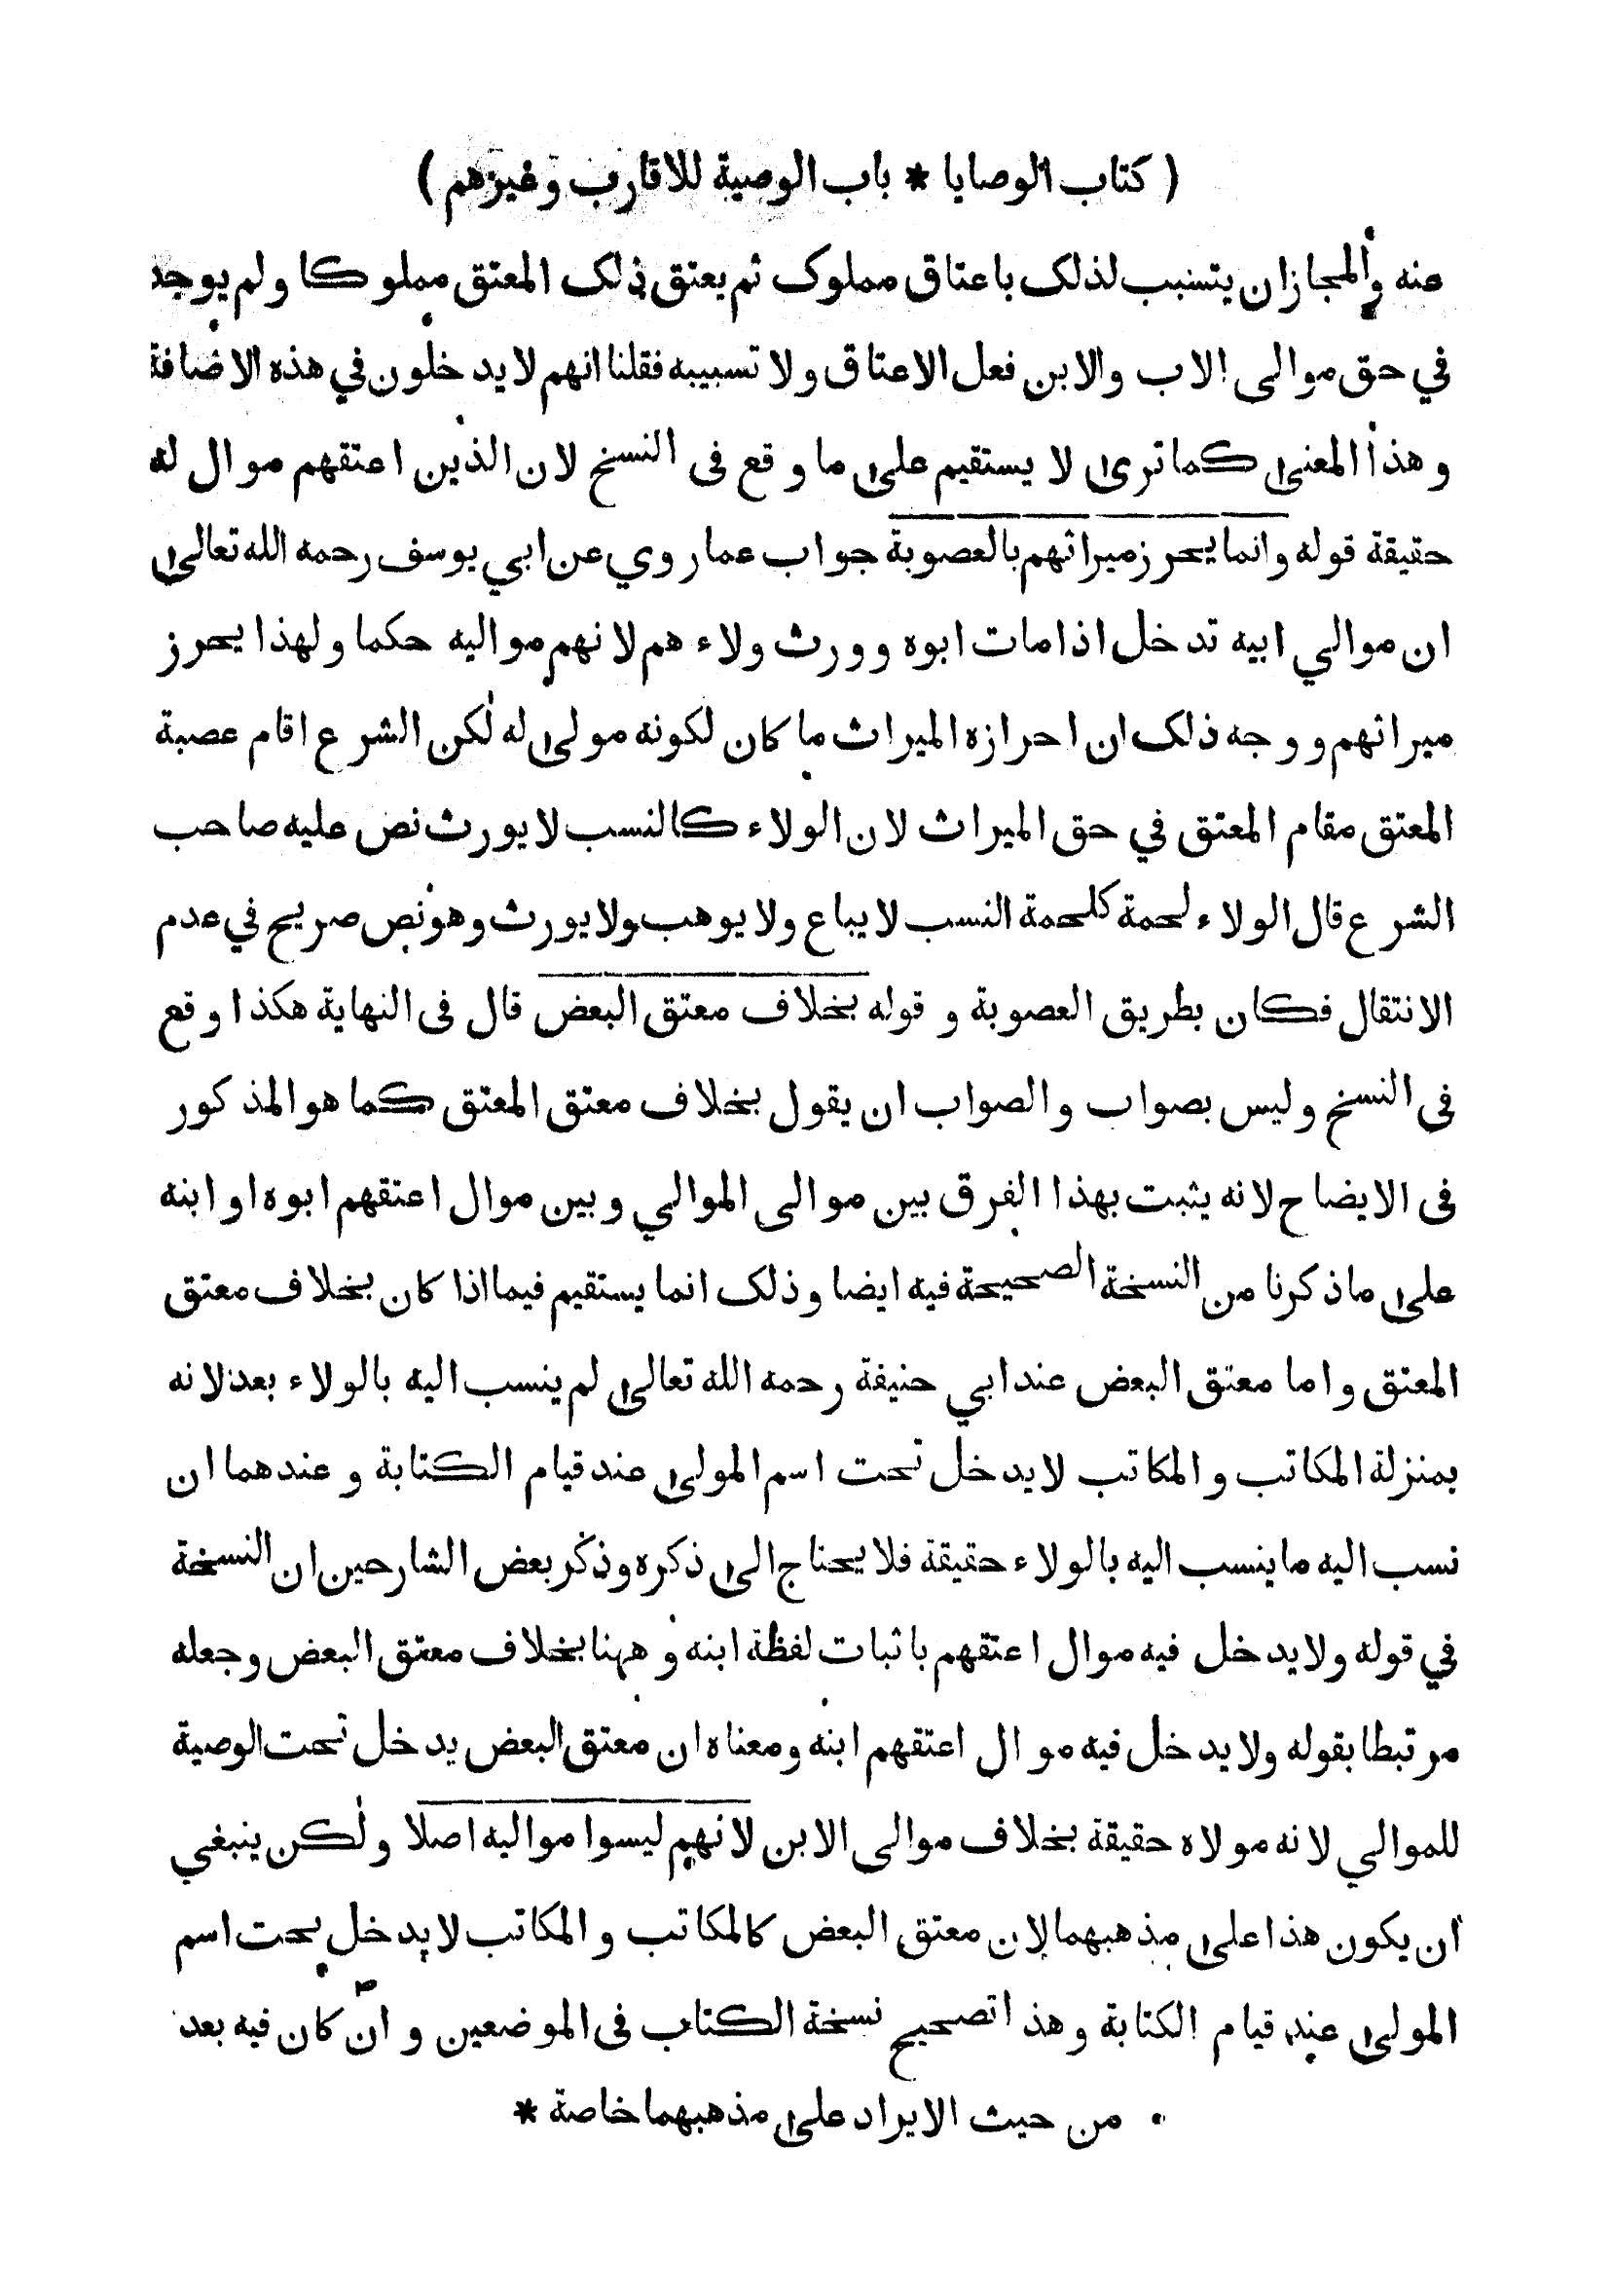 ( كتاب الوصايا * باب الوصية للاقارب وغيرهم )
عنه والمجازان يتسبب لذلك باعتاق مملوك ثم يعتق ذلك المعتق مملوكا ولم يوجد
في حق موالى الاب والابن فعل الاعتاق ولا تسبيبه فقلنا انهم لايدخلون في هذه الاضافة
وهذا المعنى كماترى لا يستقيم على ما وقع فى النسخ لان الذين اعتقهم موال له
حقيقة قوله وانما يحرز ميراثهم بالعصوبة جواب عما روي عن ابي يوسف رحمه الله تعالى
ان موالي ابيه تدخل اذا مات ابوه وورث ولاءهم لانهم مواليه حكما ولهذا يحرز
ميراثهم ووجه ذلك ان احرازه الميراث ما كان لكونه مولى له لكن الشرع اقام عصبة
المعتق مقام المعتق في حق الميراث لان الولاء كالنسب لايورث نص عليه صاحب
الشرع قال الولاء لحمة كلحمة النسب لايباع ولايوهب ولايورث وهونص صريح في عدم
الانتقال فكان بطريق العصوبة و قوله بخلاف معتق البعض قال فى النهاية هكذا وقع
فى النسخ وليس بصواب والصواب ان يقول بخلاف معتق المعتق كما هو المذكور
فى الايضاح لانه يثبت بهذا الفرق بين موالى الموالي وبين موال اعتقهم ابوه او ابنه
على ماذكرنا من النسخة الصحيحة فيه ايضا وذلك انما يستقيم فيما اذا كان بخلاف معتق
المعتق واما معتق البعض عند ابي حنيفة رحمه الله تعالى لم ينسب اليه بالولاء بعد لانه
بمنزلة المكاتب والمكاتب لايدخل تحت اسم المولى عند قيام الكتابة وعندهما ان
نسب اليه ماينسب اليه بالولاء حقيقة فلا يحتاج الى ذكره وذكر بعض الشارحين ان النسخة
في قوله ولايدخل فيه موال اعتقهم باثبات لفظة ابنه و ههنا بخلاف معتق البعض وجعله
مرتبطا بقوله ولايدخل فيه موال اعتقهم ابنه ومعناه ان معتق البعض يدخل تحت الوصية
للموالي لانه مولاه حقيقة بخلاف موالى الابن لانهم ليسوا مواليه اصلا ولكن ينبغي
ان يكون هذا على مذهبهما لان معتق البعض كالمكاتب والمكاتب لايدخل تحت اسم
المولى عند قيام الكتابة وهذا تصحيح نسخة الكتاب فى الموضعين وان كان فيه بعد
من حيث الايراد على مذهبهما خاصة *